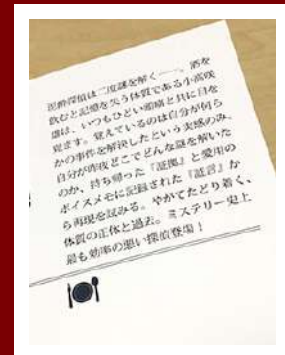 泥酔探偵は二度謎を解く――。酒を
飲むと記憶を失う体質である小高咲
雄は、いつもひどい頭痛と共に目を
覚ます。覚えているのは自分が何ら
かの事件を解決したという実感のみ。
自分が昨夜どこでどんな謎を解いた
のか、持ち帰った『証拠』と愛用の
ボイスメモに記録された『証言』か
ら再現を試みる。やがてたどり着く、
体質の正体と過去。ミステリー史上
最も効率の悪い探偵登場！